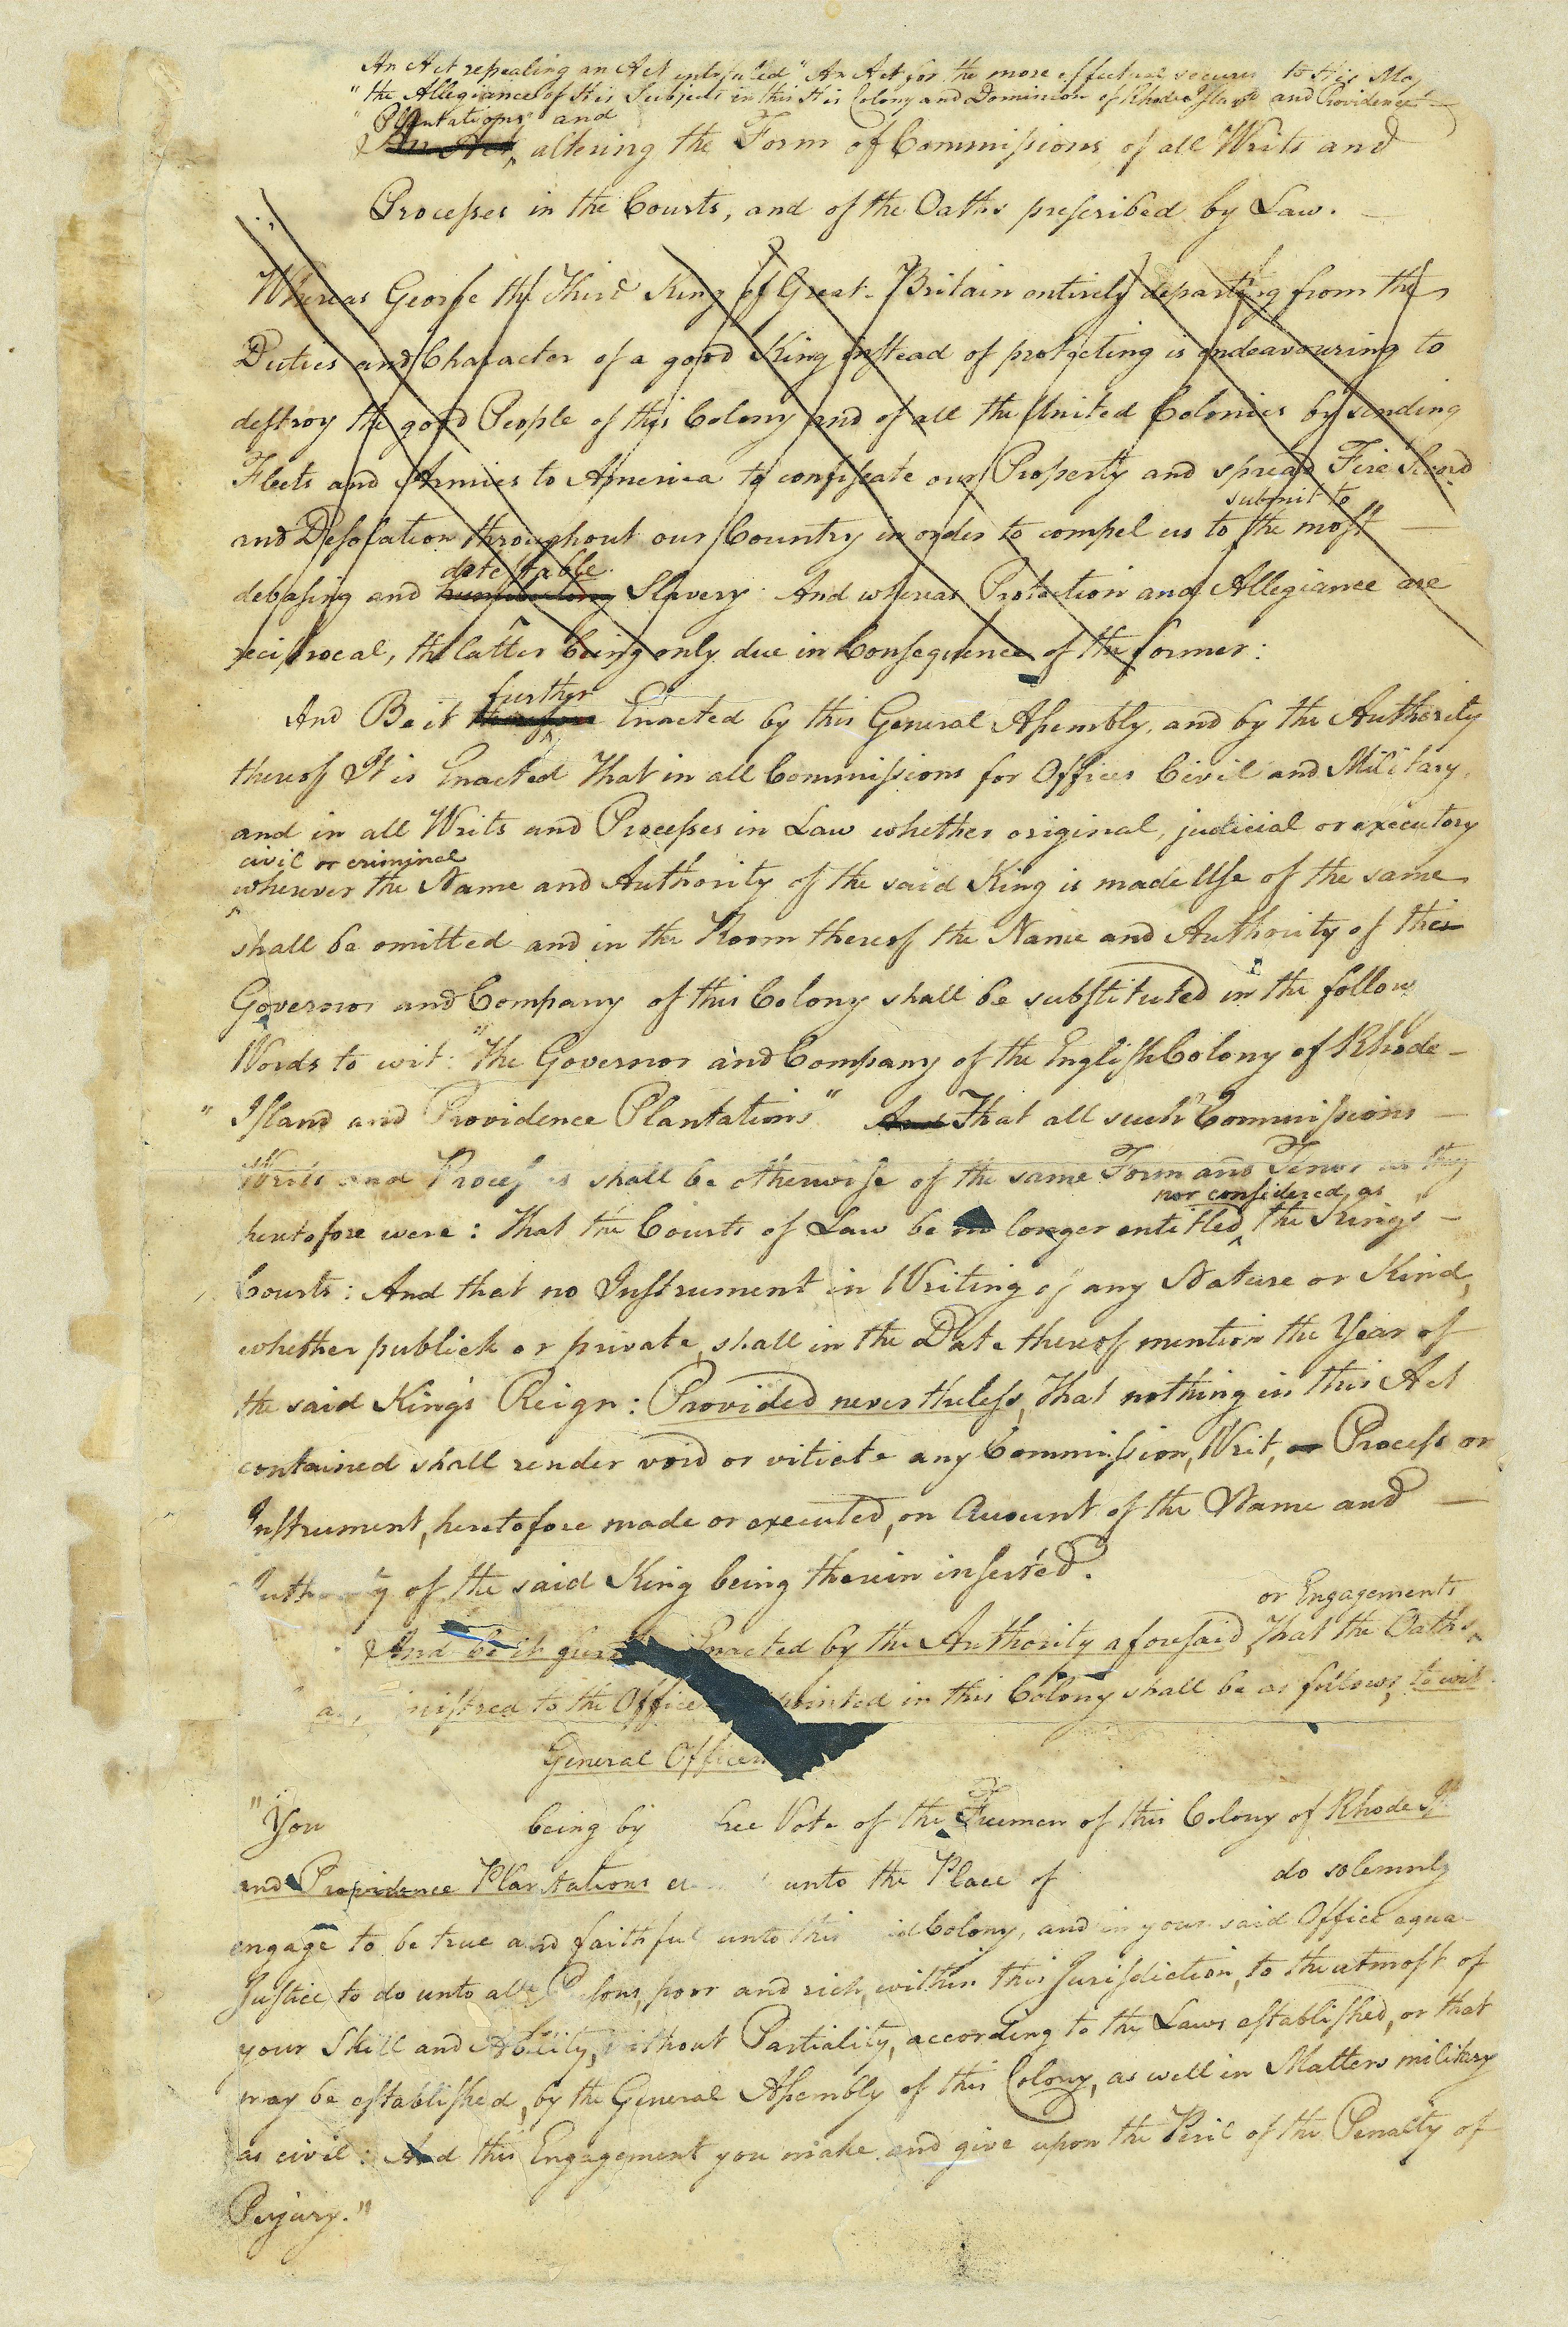 An Act repealing an Act intituled "An Act for the more effectual securing to His Maj
"the Allegiance of His Subjects in this His Colony and Dominion of Rhode Island and Providence
"Plantations" and
An Act, altering the Form of Commissions of all Writs and
Processes in the Courts, and of the Oaths prescribed by Law.
Whereas George the Third King of Great-Britain entirely departing from the
Duties and Character of a good King instead of protecting is endeavouring to
destroy the good People of this Colony and of all the United Colonies by sending
Fleets and Armies to America to confiscate our Property and spread Fire Sword
submit to
and Desolation throughout our Country in order to compel us to the most
detestable
debasing and Slavery: And whereas Protection and Allegiance are
reciprocal, the latter being only due in Consequence of the former:
further
And Be it therefore Enacted by this General Assembly, and by the Authority
thereof It is Enacted That in all Commissions for Offices Civil and Military,
and in all Writs and Processes in Law whether original, judicial or executory
civil or criminal
wherever the Name and Authority of the said King is made Use of the same
shall be omitted and in the Room thereof the Name and Authority of the
Governor and Company of this Colony shall be substituted in the follow
Words to wit: "The Governor and Company of the English Colony of Rhode-
"Island and Providence Plantations" And That all such Commissions
Writs and Processes shall be otherwise of the same Form and Tenor as they
nor considered as
heretofore were: That the Courts of Law be no longer entitled the King's
Courts: And that no Instrument in Writing of any Nature or Kind,
whether publick or private, shall in the Date thereof mention the Year of
the said King's Reign: Provided nevertheless, That nothing in this Act
contained shall render void or vitiate any Commission, Writ, or Process or
Instrument, heretofore made or executed, on Account of the Name and
Authority of the said King being therein inserted.
or Engagements
And be it further Enacted by the Authority aforesaid, That the Oaths
nistred to the Office pointed in this Colony shall be as follows, to wit.
General Officers
"You being by ree Vote of the Freemen of this Colony of Rhode Isl
and Providence Plantations unto the Place of do solemnly
engage to be true and faithful unto this id Colony, and in your said Office equa
Justice to do unto all Persons, poor and rich, within this Jurisdiction, to the utmost of
your Skill and Ability, without Partiality, according to the Laws established, or that
may be established, by the General Assembly of this Colony, as well in Matters military
as civil: And this Engagement you make and give upon the Peril of the Penalty of
Perjury."